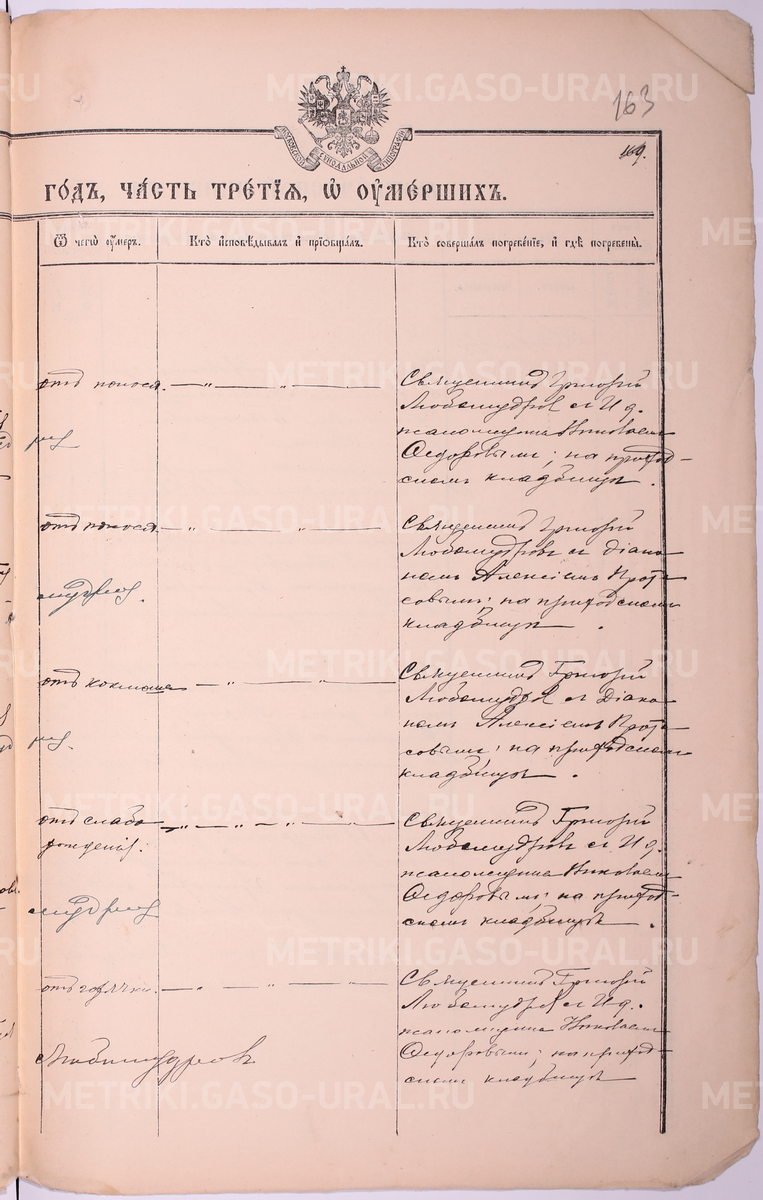 163
169.
МОСКОВСКОЙ СѴНОДАЛЬНОЙ ТИПОГРАФІИ
го́дъ, ча́сть тре́тїѧ, ѡ҆ ᲂу҆ме́ршихъ.
Ѿ чегѡ̀ ᲂу҆́меръ.
Кто̀ и҆сповѣ́дывалъ и҆ прїѡбща́лъ.
Кто̀ соверша́лъ погребе́нїе, и҆ гдѣ̀ погребены̀.
отъ поноса. — „ — „ —
Священникъ Григорій
Любомудровъ съ И. д.
псаломщика Николаемъ
Ѳедоровымъ; на приход-
скомъ кладбищѣ.
отъ поноса — „ — „ —
Священникъ Григорій
Любомудровъ съ Діако-
номъ Алексіемъ Прота-
совымъ; на приходскомъ
кладбищѣ.
отъ коклюша — „ — „ —
Священникъ Григорій
Любомудровъ съ Діако-
номъ Алексіемъ Прота-
совымъ; на приходскомъ
кладбищѣ.
отъ слабо- — „ — „ —
рожденія.
Священникъ Григорій
Любомудровъ съ И. д.
псаломщика Николаемъ
Ѳедоровымъ; на приход-
скомъ кладбищѣ.
отъ горячки. — „ — „ —
Священникъ Григорій
Любомудровъ съ И. д.
псаломщика Николаемъ
Ѳедоровымъ; на приход-
скомъ кладбищѣ
Любомудровъ
METRIKI.GASO-URAL.RU